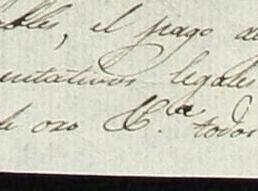 bles, el pago de
entativos legales
de oro &.ª todos